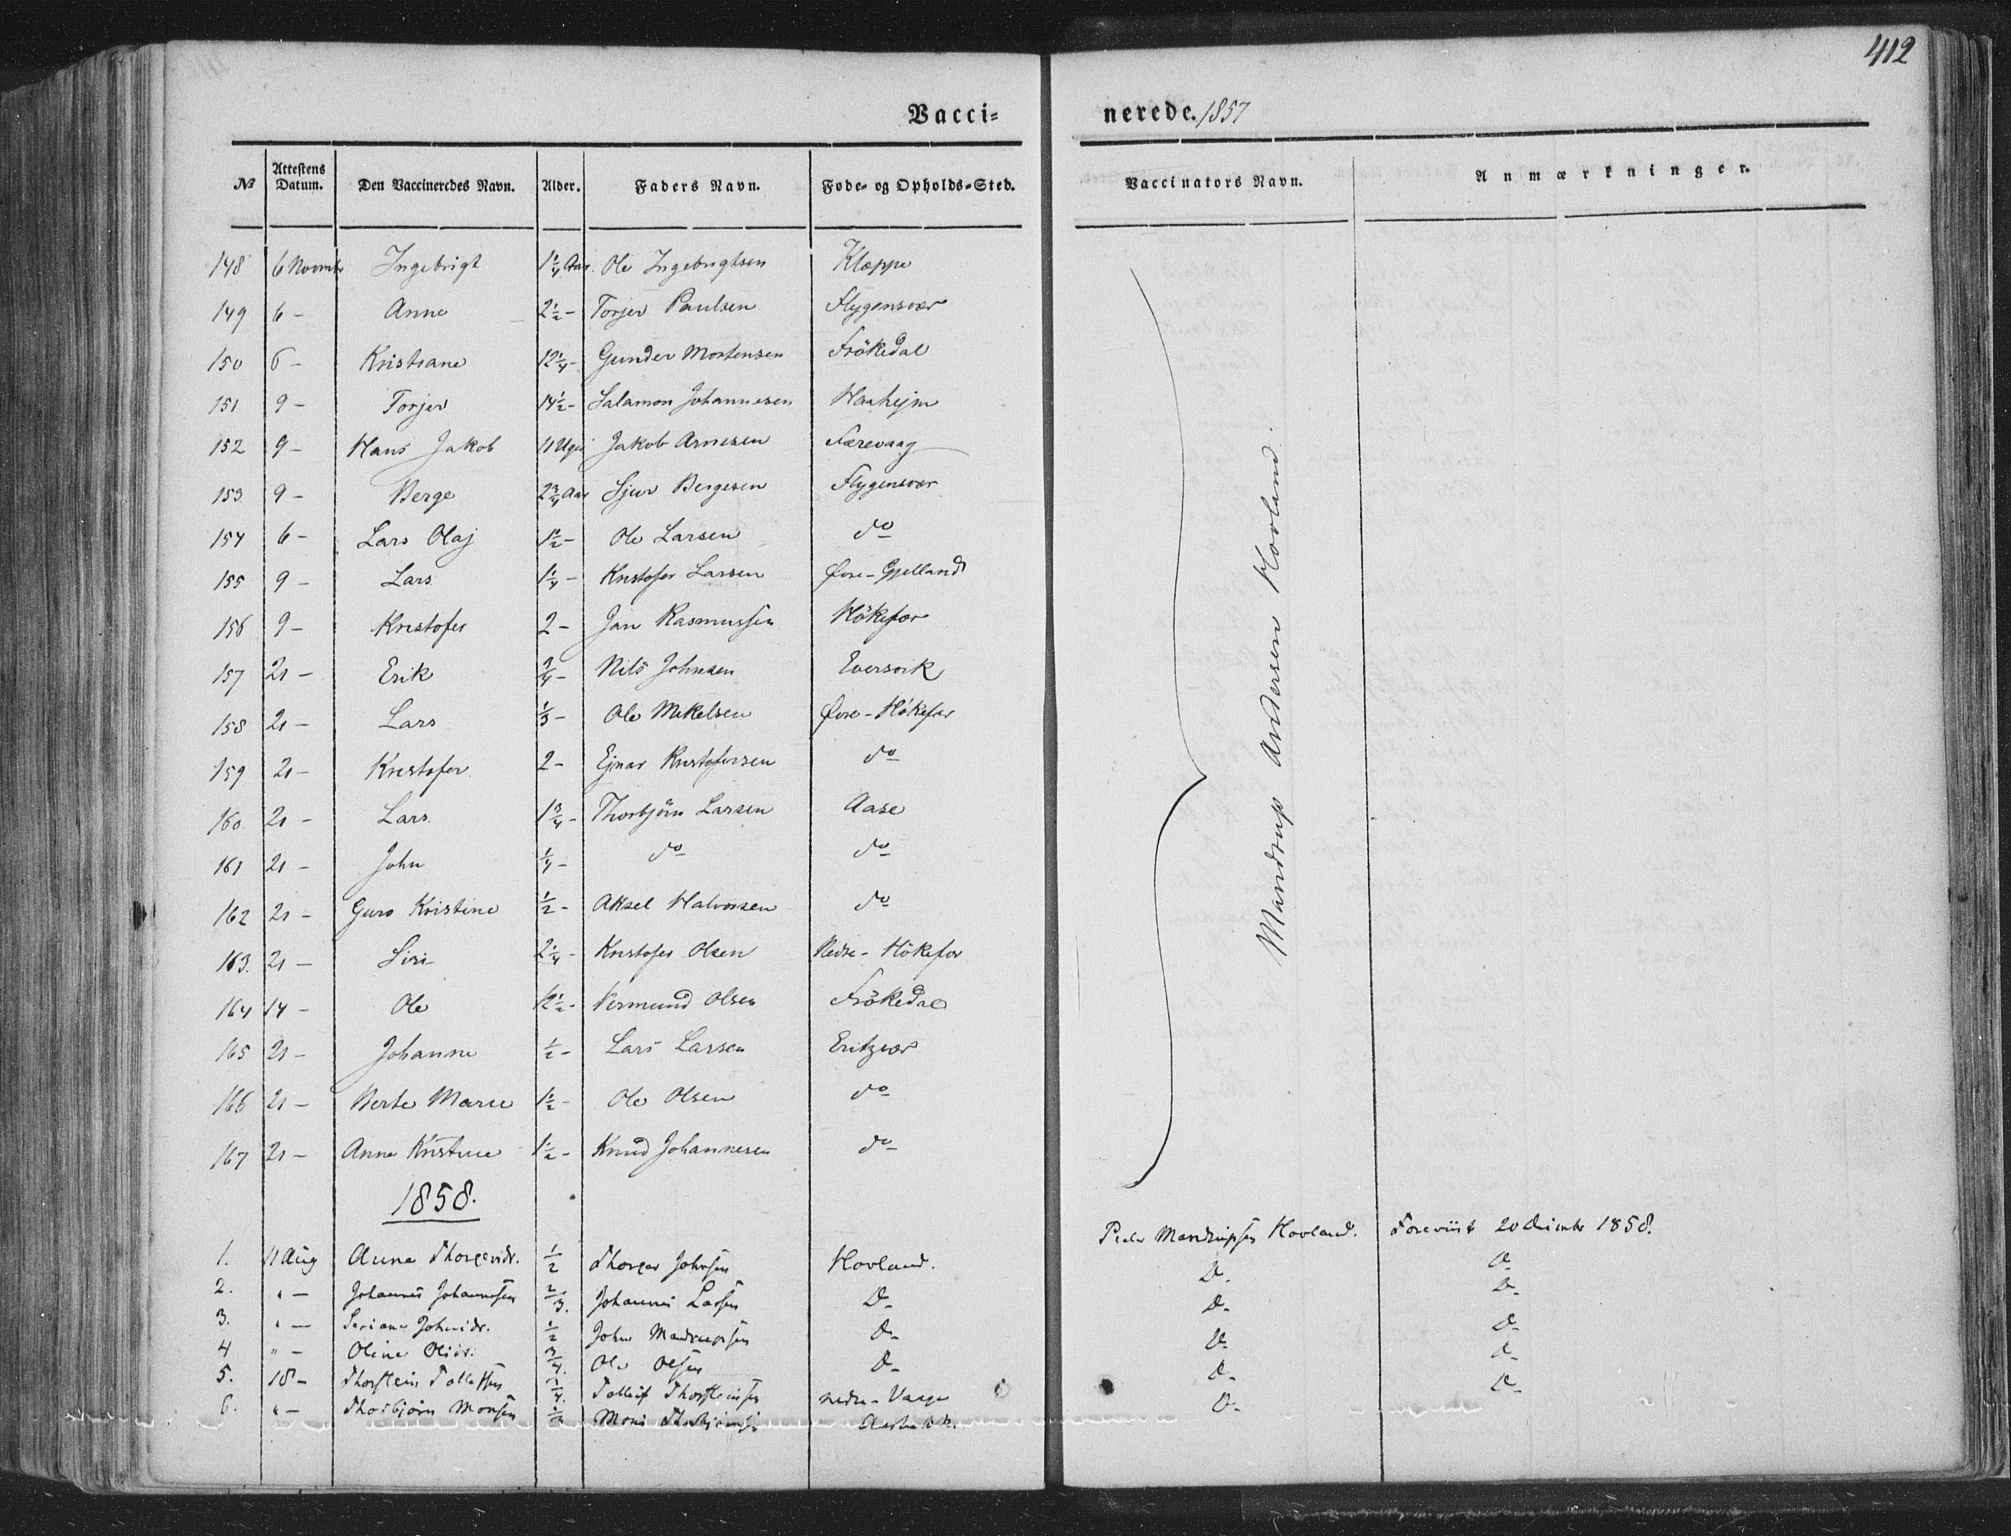 412
Vacci= nerede. 1857
№ Attestens Datum. Den Vaccineredes Navn. Alder. Faders Navn. Føde- og Opholds-Sted. Vaccinators Navn. Anmærkninger.
148 6 Novmbr Ingebrigt 1 1/4 Aar Ole Ingebrigtsen Klæppe
149 6 – Anne 2 1/2 – Torjer Paulsen Flygensvær
150 6 – Kristiane 12 1/4 – Gunder Mortensen Frökedal
151 9 – Torjer 14 1/2 – Salamon Johannesen Haahejm
152 9 – Hans Jakob 11 Uger Jakob Arnesen Færevaag
153 9 – Berge 2 3/4 Aar Sjur Bergesen Flygensvær
154 6 – Lars Olaj 1 1/2 – Ole Larsen do
155 9 – Lars 1 1/4 – Kristofer Larsen Øvre-Gjelland
156 9 – Kristofer 2 – Jan Rasmussen Hökefor
157 21 – Erik 3/4 – Nils Johnsen Eversvik
158 21 – Lars 1/3 – Ole Mikelsen Øvre-Hökefor
159 21 – Kristofer 2 – Ejnar Kristofersen do
160 21 – Lars 1 3/4 – Thorbjörn Larsen Aase
161 21 – John 1/4 – do do
162 21 – Guro Kristine 1/2 – Aksel Halvorsen do
163. 21 – Siri 2 1/4 – Kristofer Olsen Nedre-Hökefor
164 14 – Ole 12 1/2 – Vermund Olsen Frökedal
165 21 – Johanne 1/2 – Lars Larsen Eritzvær
166 21 – Berte Marie 1 1/2 – Ole Olsen do
167 21 – Anne Kristine 1 1/2 – Knud Johannesen do
Mandrup Andersen Hovland.
1858.
1. 11 Aug Anna Thorgersdr. 1/2 Thorger Johnsen Hovland. Peder Mandrupsen Hovland. Foreviist 20 Decimbr 1858.
2. " – Johannes Johannesen 2/3. Johannes Larsen D– D– D–
3. " – Seriane Johnsdr. 1/2 John Mandrupsen D– D– D–
4 " – Oline Olsdr. 3/4. Ole Olsen D– D– D–
5. 18 – Thorstein Tollefsen Tollef Thorsteinsen nedre-Vaage D– D–
6. " – Thorbjörn Monsen Mons Thorbjörnsen D– D–